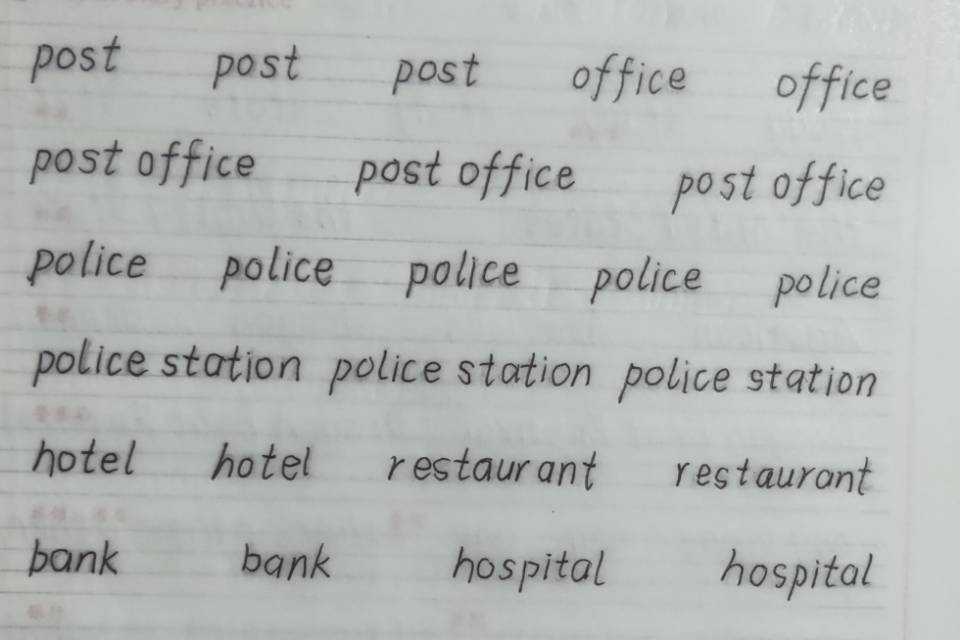 post post post office office
post office post office post office
police police police police police
police station police station police station
hotel hotel restaurant restaurant
bank bank hospital hospital